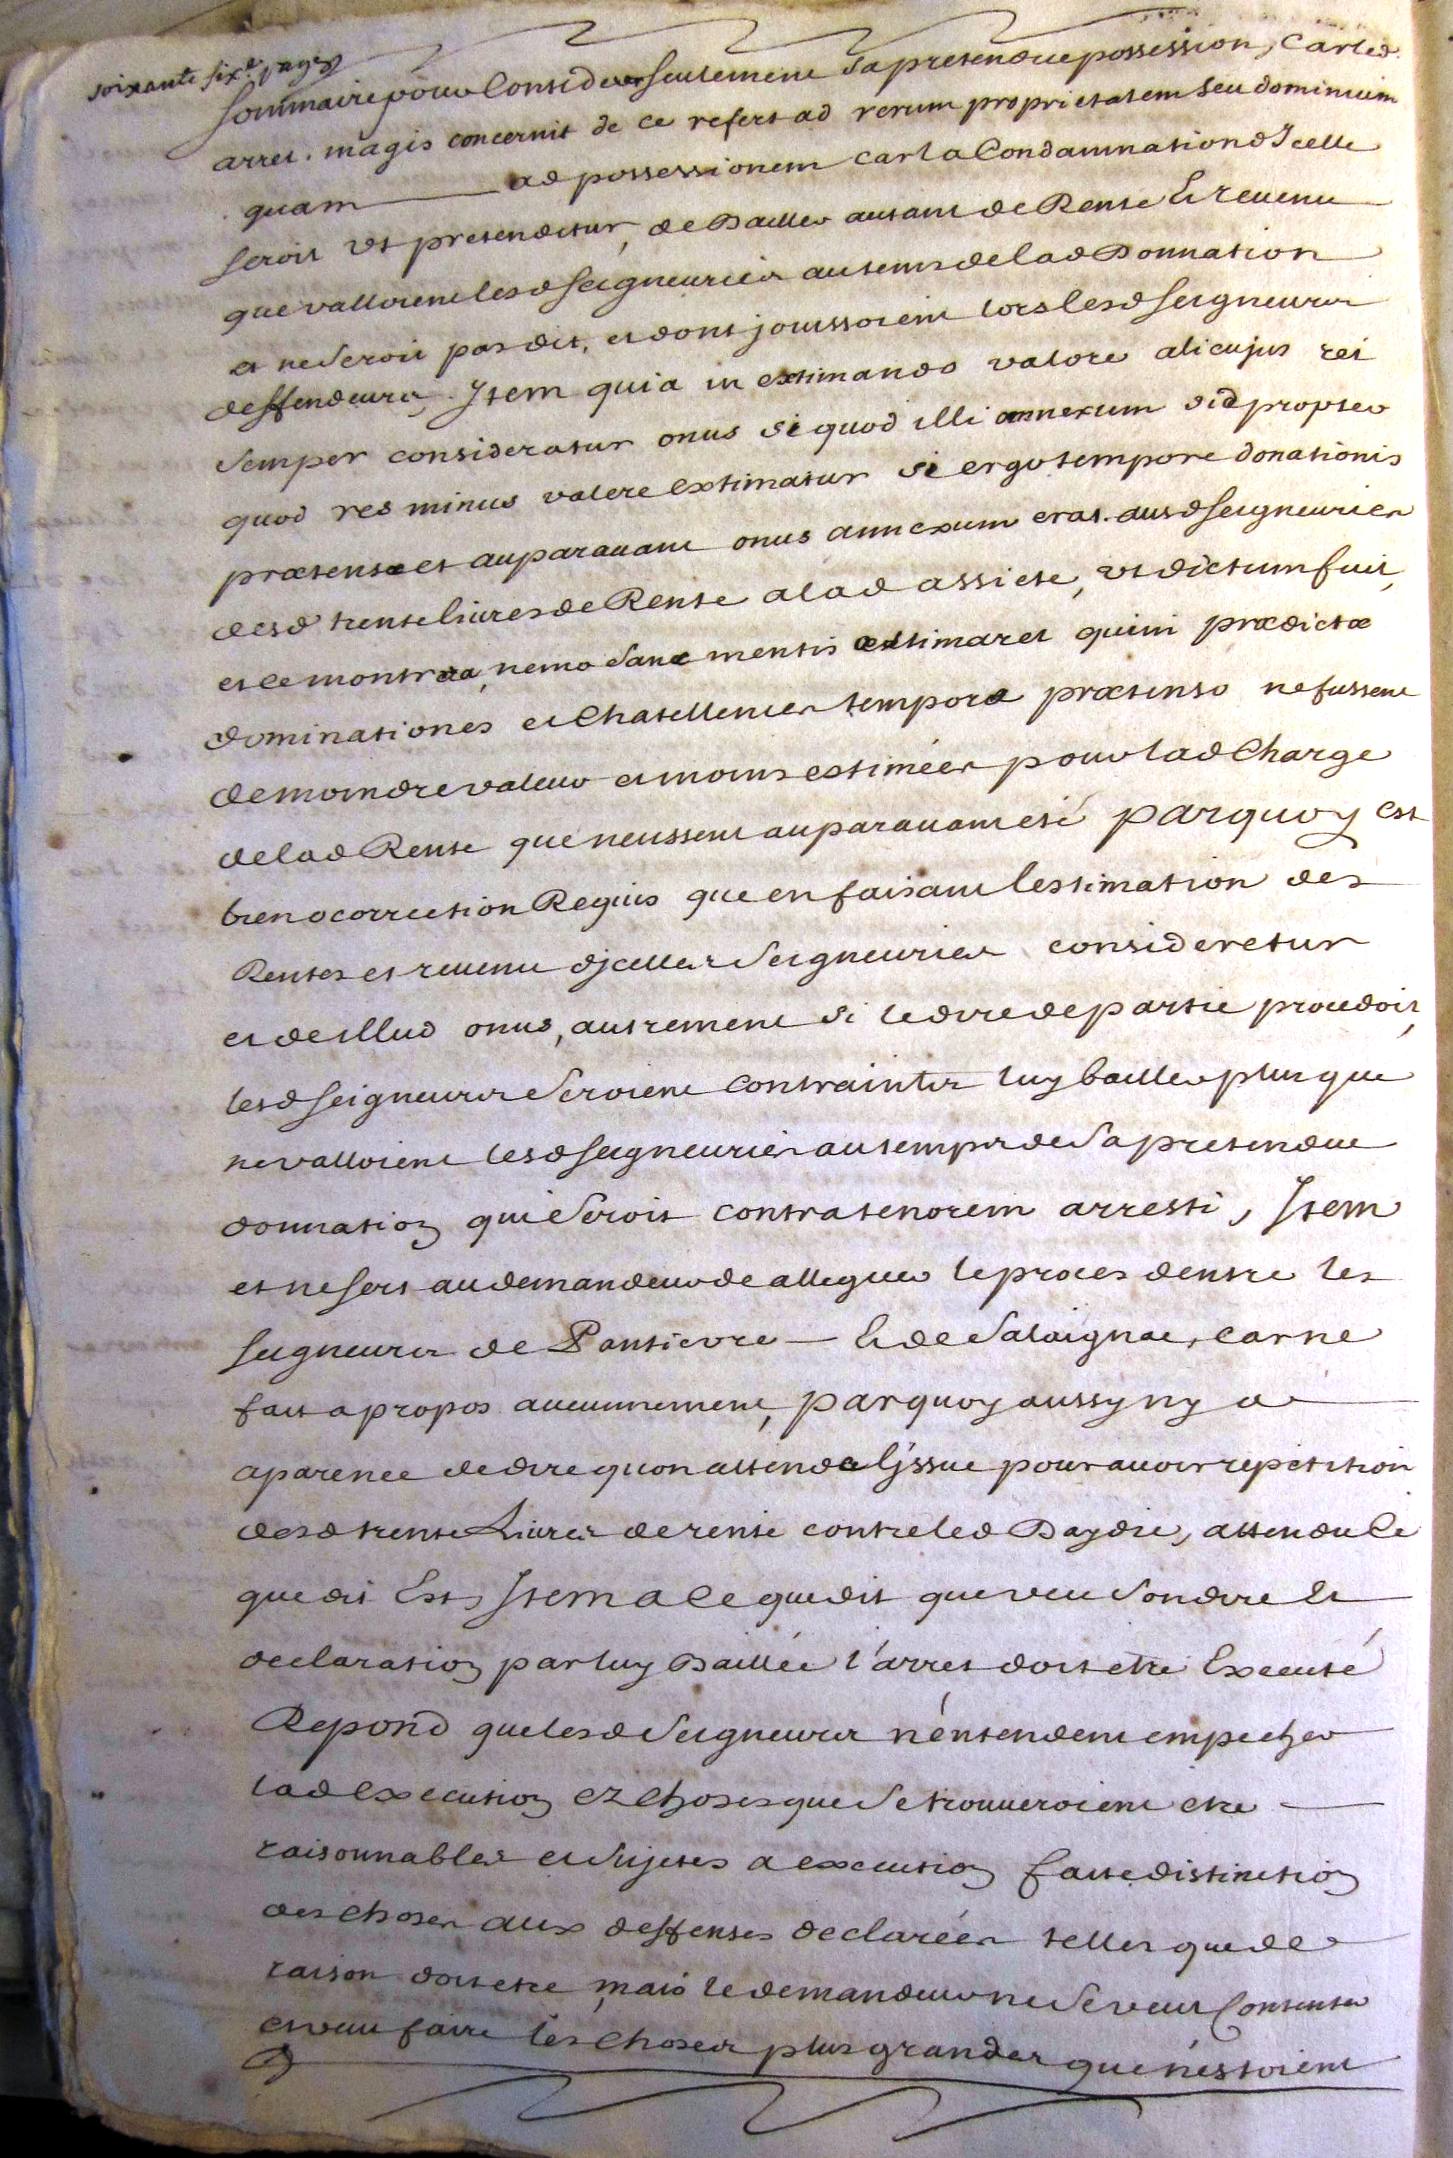 soixante six.e page
sommaire pour Considerer seulement sa pretendue possession, Car led.
arret. magis concernit de ce refert ad rerum proprietatem seu dominium
quam ad possessionem car la Condamnation d'Icelle
seroit ut pretenditur, de Bailler autant de Rente Et revenu
que valloient lesd seigneuries au tems de lad Donnation
et ne seroit pas dit, et dont jouissoient lors lesd seigneurs
deffendeurs, Item quia in extimando valore alicujus rei
semper consideratur onus si quod illi annexum sid propter
quod res minus valere extimatur si ergo tempore donationis
prætensæ et auparavant onus annexum erat. ausd seigneuries
desd trente livres de Rente a lad assiete, ut dictum fuit,
et le montrera, nemo sanæ mentis æstimaret quini prædictæ
dominationes et Chatellenies tempore prætenso ne fussent
de moindre valeur et moins estimées pour lad Charge
de lad Rente que neussent auparavant esté parquoy est
bien o correction Requis que en faisant lestimation des
Rentes et revenu djcelles seigneuries consideretur
et de illud onus, autrement si le dire de partie procedoit,
lesd seigneurs seroient contraints luy bailler plus que
ne valloient lesd seigneuries au temps de sa pretendue
donnation qui seroit contra tenorem arresti, Item
et ne sert au demandeur de alleguer le proces dentre les
seigneurs de Pantievre — Et de Salaignac, car ne
fait a propos aucunnement, parquoy aussy ny a
aparence de dire quon attende l'jssue pour avoir repetition
desd trente Livres de rente contre led Baydie, attendu Ce
que dit Est, Item a Ce que dit que veu son dire Et
declaration par luy Baillée l'arret doit etre Executé
Repond que lesd seigneurs n'entendent empecher
lad execution ez choses que se trouveroient etre —
raisonnables et sujetes a execution faite distinction
des choses aux deffenses declarées telles que de
raison doit etre, mais le demandeur ne se veut Contenter
et veut faire les choses plus grandes que n'estoient